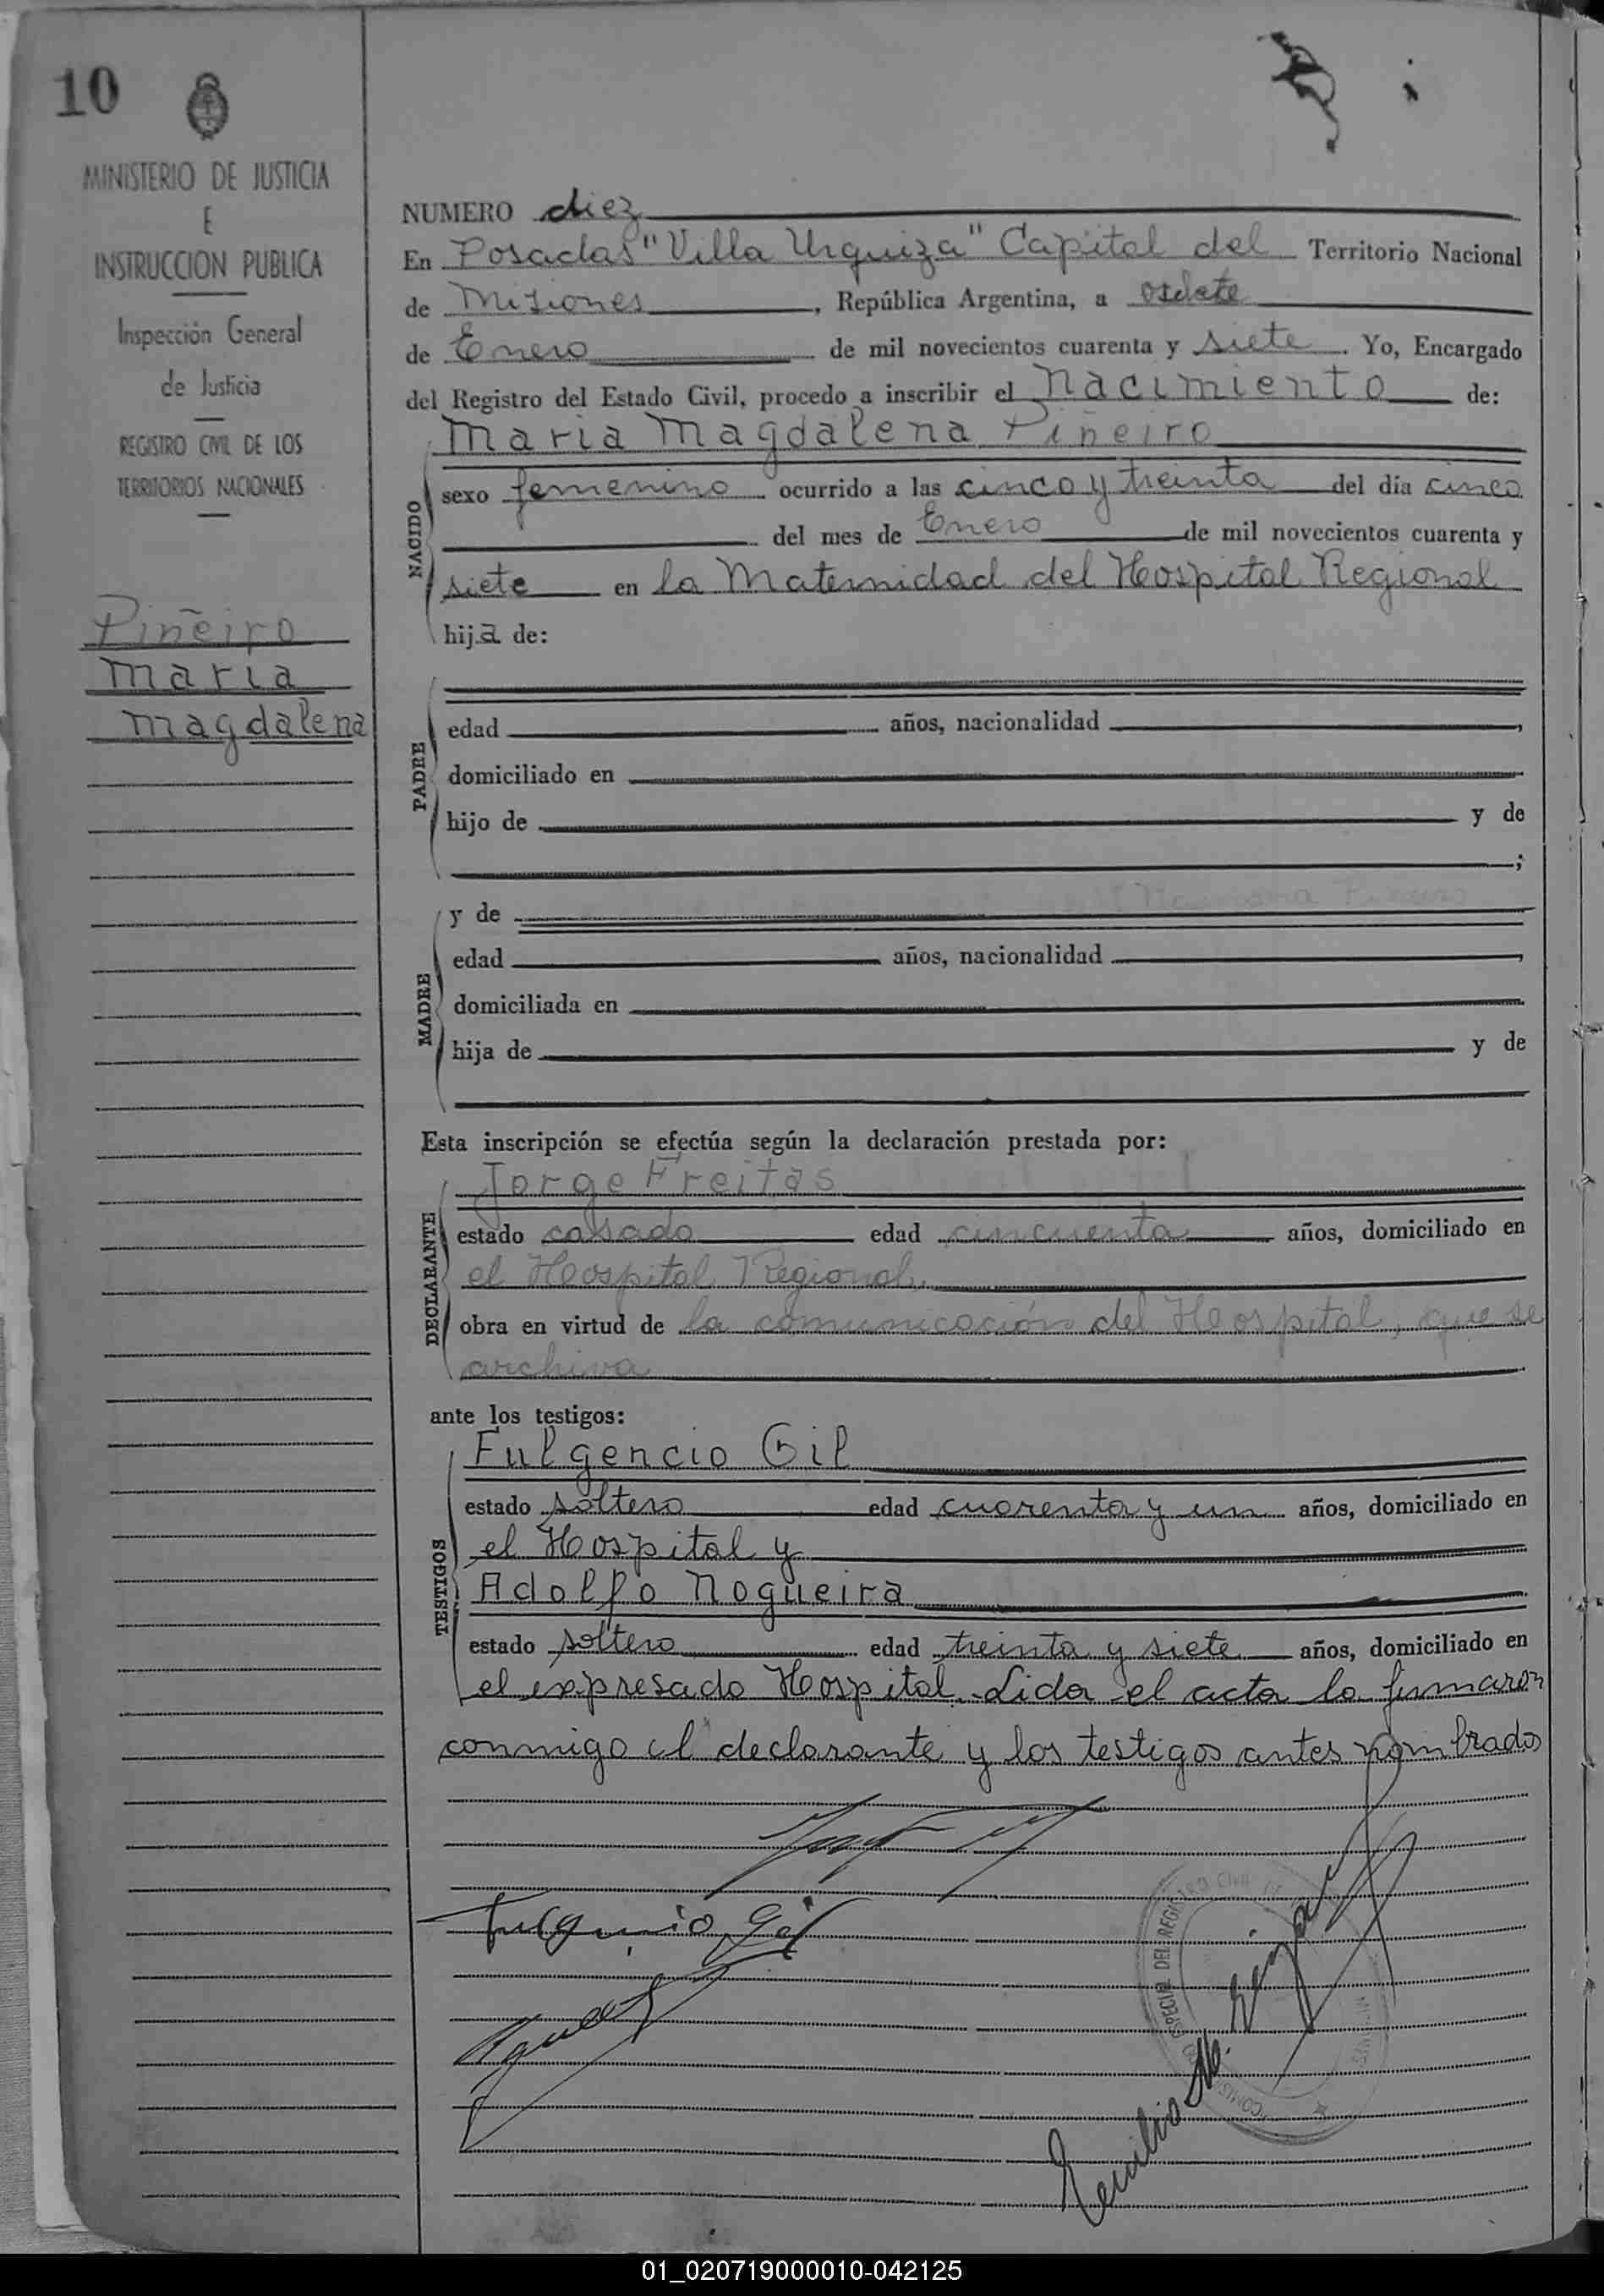 10
MINISTERIO DE JUSTICIA
E
INSTRUCCION PUBLICA
Inspección General
de Justicia
REGISTRO CIVIL DE LOS
TERRITORIOS NACIONALES
Piñeiro
Maria
Magdalena
NUMERO diez
En Posadas "Villa Urquiza" Capital del Territorio Nacional
de Misiones, República Argentina, a
de Enero de mil novecientos cuarenta y siete. Yo, Encargado
del Registro del Estado Civil, procedo a inscribir el Nacimiento de:
Maria Magdalena Piñeiro
NACIDO
sexo femenino ocurrido a las cinco y treinta del día cinco
del mes de Enero de mil novecientos cuarenta y
siete en la Maternidad del Hospital Regional
hija de:
PADRE
edad años, nacionalidad
domiciliado en
hijo de y de
;
MADRE
y de
edad años, nacionalidad
domiciliada en
hija de y de
Esta inscripción se efectúa según la declaración prestada por:
DECLARANTE
Jorge Freitas
estado casado edad cincuenta años, domiciliado en
el Hospital Regional,
obra en virtud de la comunicación del Hospital, que se
archiva
ante los testigos:
TESTIGOS
Fulgencio Gil
estado soltero edad cuarenta y un años, domiciliado en
el Hospital y
Adolfo Nogueira
estado soltero edad treinta y siete años, domiciliado en
el expresado Hospital. Lida el acta la firmaron
conmigo el declarante y los testigos antes nombrados
Fulgencio Gil
Emilio M.
01_020719000010-042125